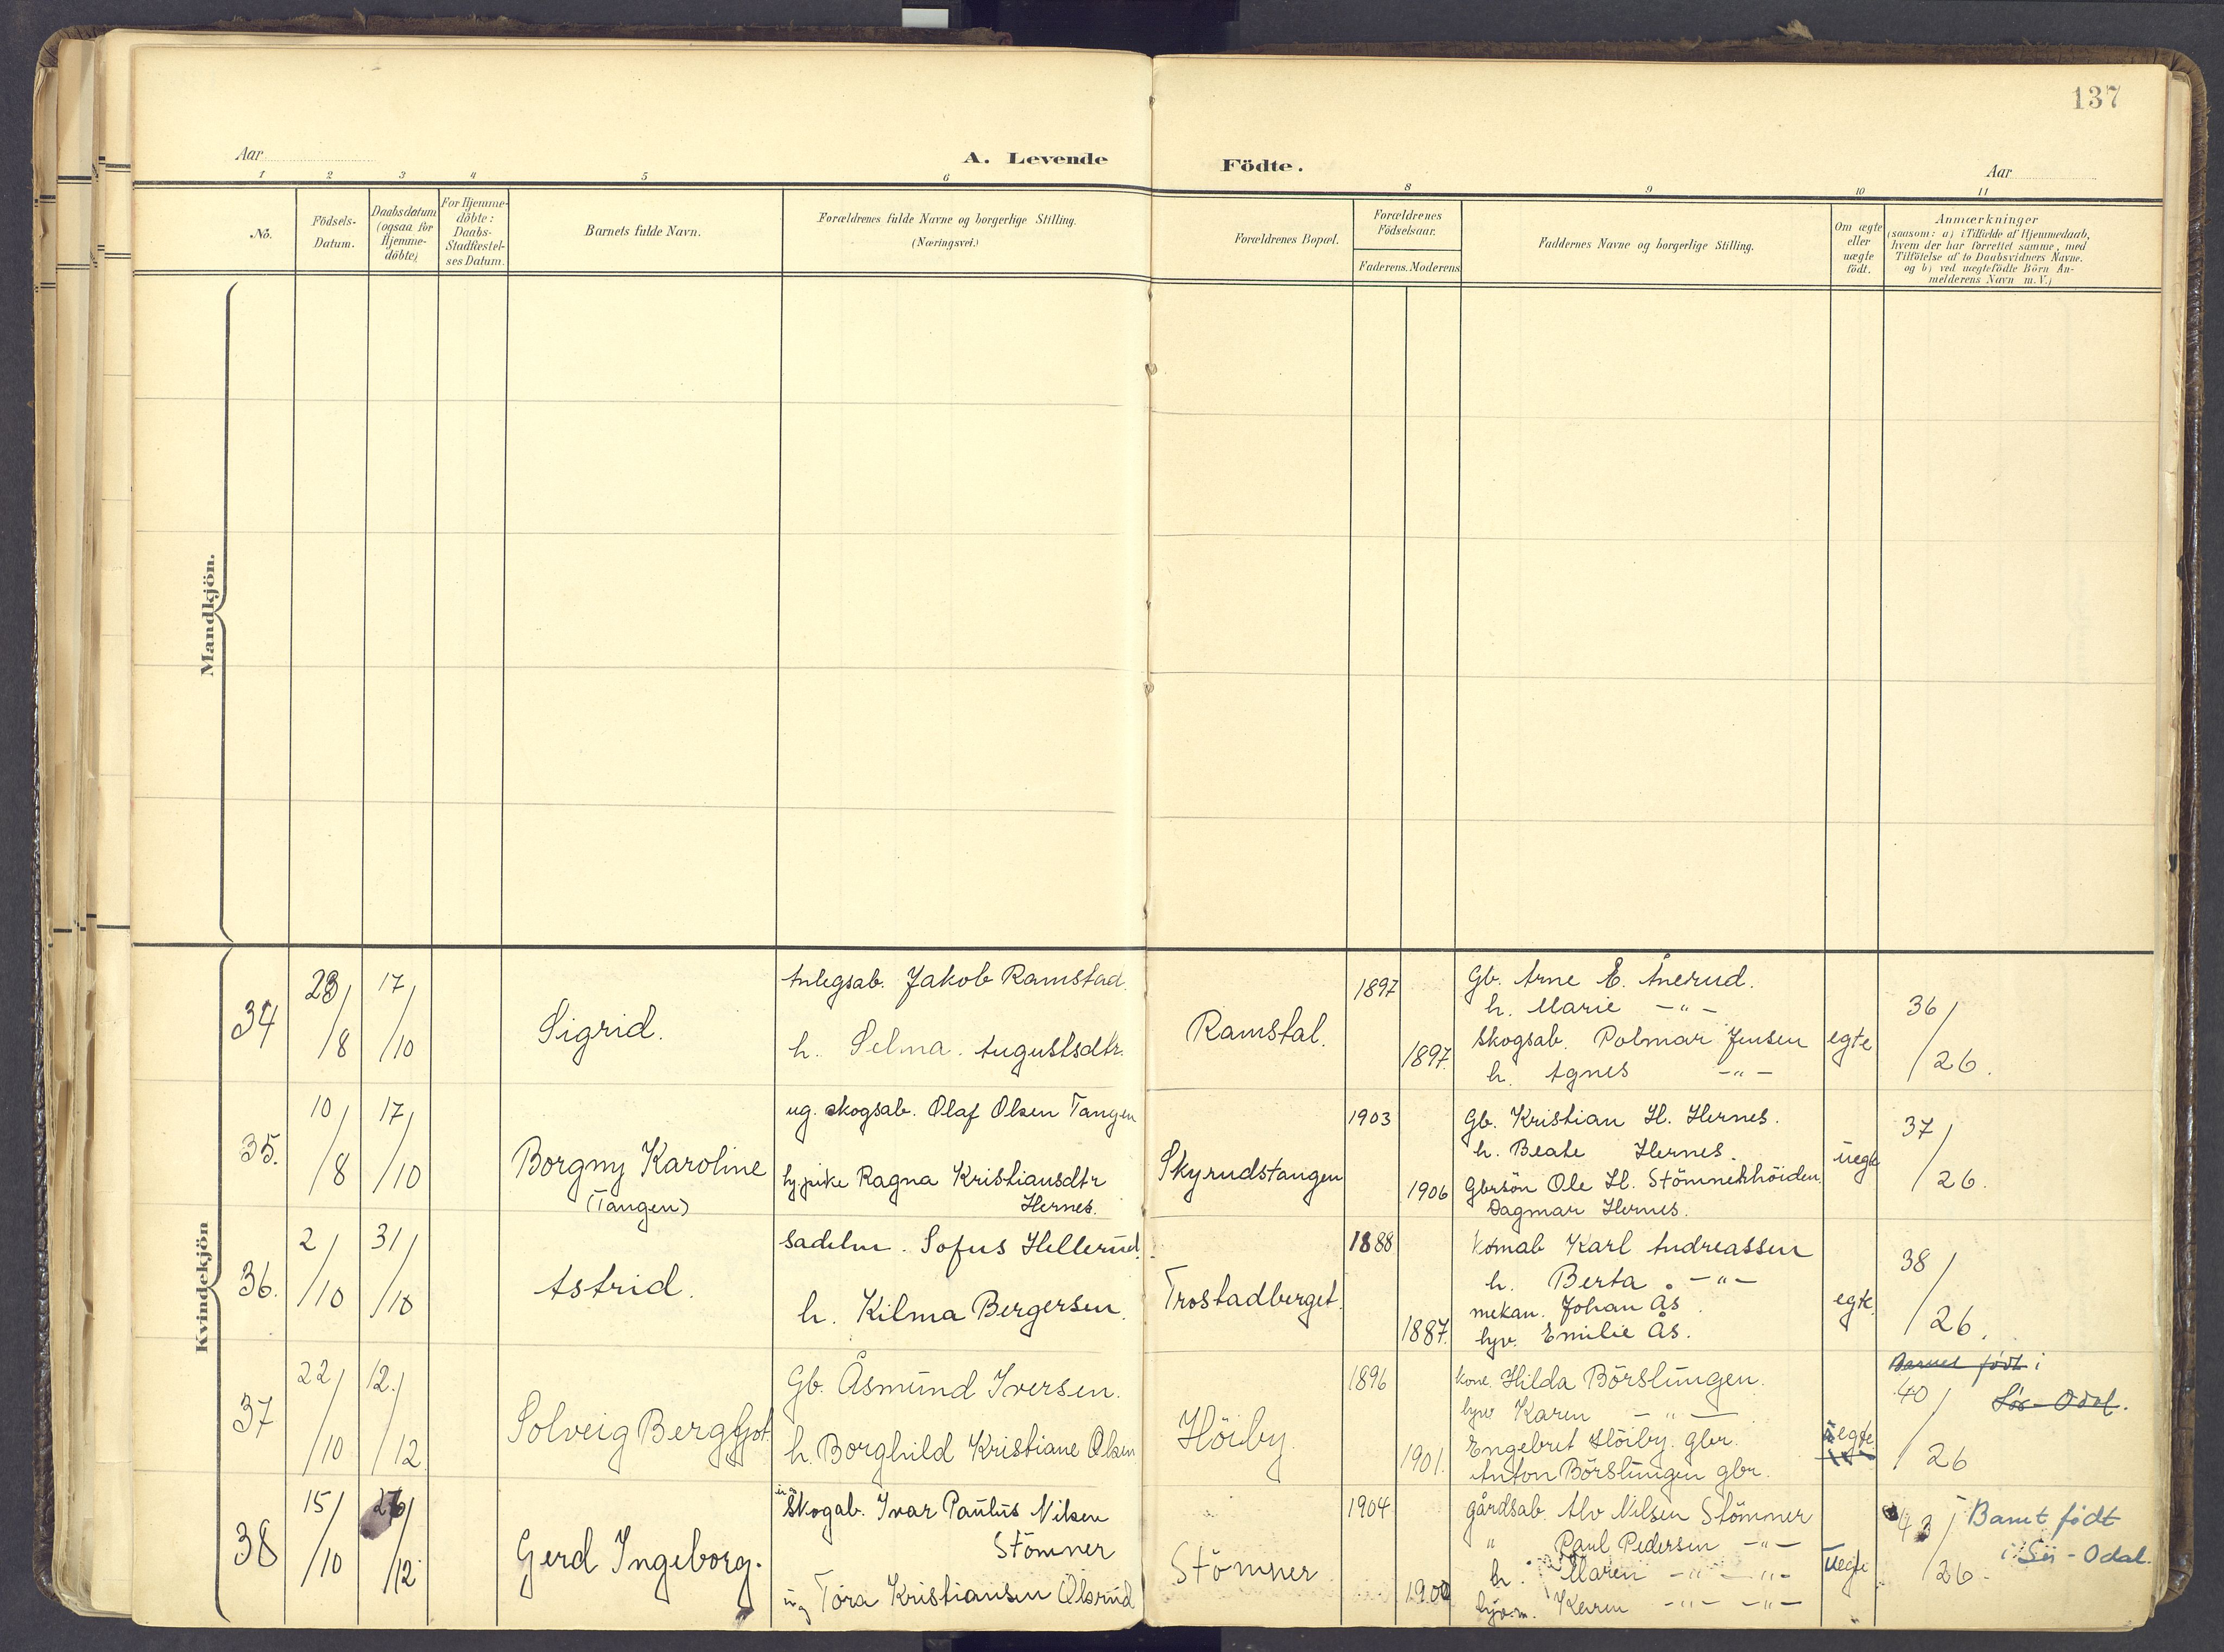 137
Aar
A. Levende Födte.
Aar
1 2 3 4 5 6 8 9 10 11
No.
Födsels-
Datum.
Daabsdatum
(ogsaa for
Hjemme-
döbte)
For Hjemme-
döbte:
Daabs-
Stadfæstel-
ses Datum.
Barnets fulde Navn.
Forældrenes fulde Navne og borgerlige Stilling.
(Næringsvei.)
Forældrenes Bopæl.
Forældrenes
Födselsaar.
Faderens. Moderens
Faddernes Navne og borgerlige Stilling.
Om ægte
eller
uægte
födt.
Anmærkninger
(saasom: a) i Tilfælde af Hjemmedaab,
hvem der har forrettet samme, med
Tilföielse af to Daabsvidners Navne.
og b) ved uægtefödte Börn An-
melderens Navn m.V.)
Mandkjön.
Kvindekjön
34
23/8
17/10
Sigrid.
Anlegsab. Jakob Ramstad.
h. Selma. Augustsdtr.
Ramstal.
1897
1897.
Gb. Arne E. Ånerud.
h. Marie -"-
Skogsab. Polmar Jensen
h. Agnes -"-
egte
36/26.
35.
10/8
17/10
Borgny Karoline
(Tangen)
ug. skogsab. Olaf Olsen Tangen
hj. pike Ragna Kristiansdtr
Hernes.
Skyrudstangen
1903
1906
Gb. Kristian H. Hernes.
h. Beate Hernes.
Gbrsön Ole H. Stömnerhöiden.
Dagmar Hernes.
uegte
37/26.
36.
2/10
31/10
Astrid.
Sadelm. Sofus Hellerud.
h. Kilma Bergersen.
Trostadberget.
1888
1887.
Komab Karl Andreassen
h. Berta. -"-
mekan. Johan Ås.
hjv. Emilie Ås.
egte
38/26.
37
22/10
12./12
Solveig Bergljot.
Gb. Åsmund Iversen.
h. Borghild Kristiane Olsen
Höiby.
1896
1901.
kone. Hilda Börslungen.
hjv Karen - " -
Engebret Höiby. gbr.
Anton Börslungen gbr.
egte
Barnet födt i
Sör-Odal.
40/26
38
15/10
26/12
Gerd Ingeborg.
Skogab. Ivar Paulus Nilsen
Stömner
ug Tora Kristiansen Olsrud
Stömner.
1904
1900
gårdsab. Alv Nilsen Stömner
" Paul Pedersen -"-
h. Maren -"- -"-
hjv.m. Karen -"- -"-
uegte
43/26.
Barnet födt
i Sör-Odal.